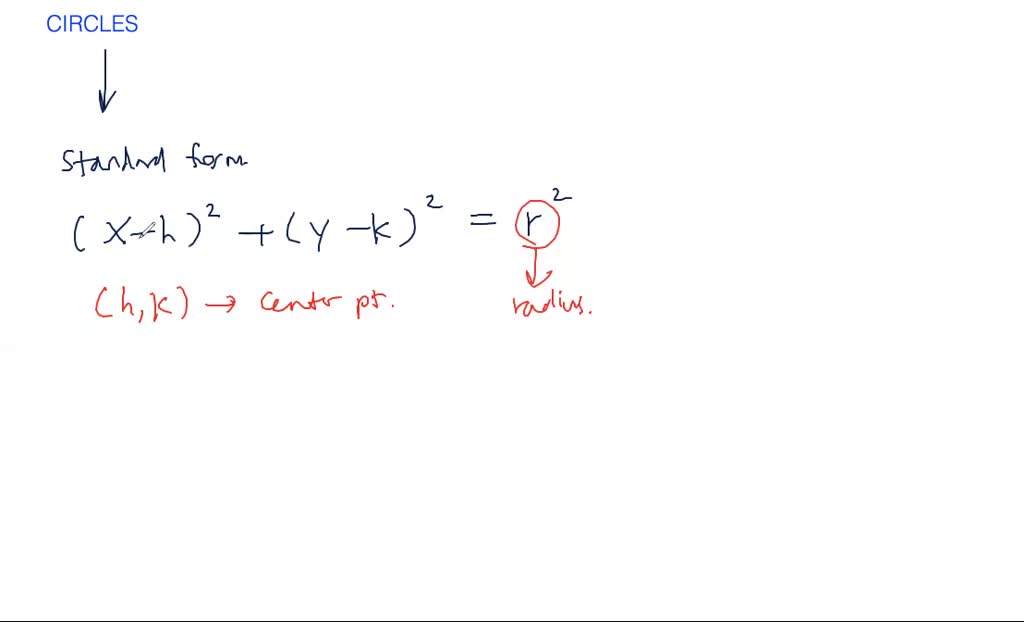 CIRCLES
Standard form
(x-h)² + (y-k)² = r²
(h,k) → center pt. radius.